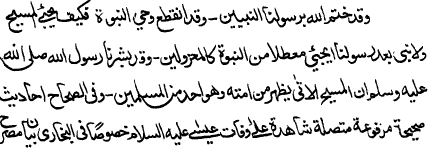 وقد ختم الله برسولنا النبيين - وقد انقطع وحي النبوة فكيف يجيئ المسيح
ولا نبي بعد رسولنا أيجيئ معطلا من النبوة كالمعزولين - وقد بشرنا رسول الله صلى الله
عليه وسلم ان المسيح الاتي يظهر من امته وهو احد من المسلمين - وفى الصحاح احاديث
صحيحة مرفوعة متصلة شاهدة على وفات عيسى عليه السلام خصوصًا فى البخارى بيان مصرح